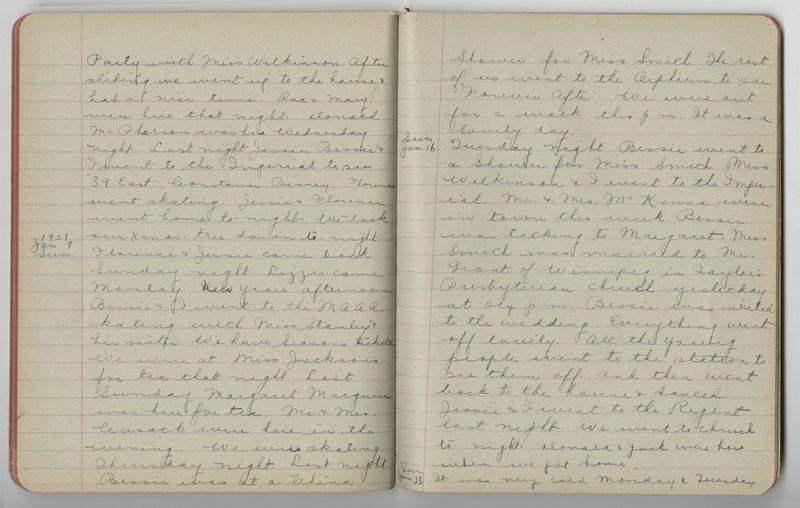 Party with Miss Wilkinson After
sliding we went up to the house &
had a nice time. Roe & Mary
were here that night. Donald
McPherson was here Wednesday
night. Last night Jessie Bessie &
I went to the Imperial to see
"39 East" Constance Binney. Florence
went skating. Jessie & Florence
went home to-night. We took
our Xmas tree down to-night
1921
Jan 9
Sun
Florence & Jessie came back
Sunday night Lizzie came
Monday. New Years afternoon
Bessie & I went to the M.A.A.A.
skating with Miss Stanley &
her sister We have seasons tickets
We were at Miss Jacksons
for tea that night. Last
Sunday Margaret Macguire
was here for tea. Mr & Mrs.
Cusack were here in the
evening We were skating
Thursday night Last night
Bessie was at a China
Shower for Miss Smith. The rest
of us went to the Orpheum to see
"Forever After". We were out
for a walk this p.m. It was a
lovely day.
Sun
Jan. 16.
Tuesday night Bessie went to
a Shower for Miss Smith. Miss
Wilkinson & I went to the Impe-
rial. Mr. & Mrs. McKenna were
in town this week. Bessie
was talking to Margaret. Miss
Smith was married to Mr.
Grant of Winnipeg in Taylor's
Presbyterian church yesterday
at six p.m. Bessie was invited
to the wedding Everything went
off lovely. All the young
people went to the station to
see them off and then went
back to the house & danced.
Jessie & I went to the Regent
last night We went to church
to-night. Donald & Jack were here
when we got home.
Sun
Jan 23
It was very cold Monday & Tuesday